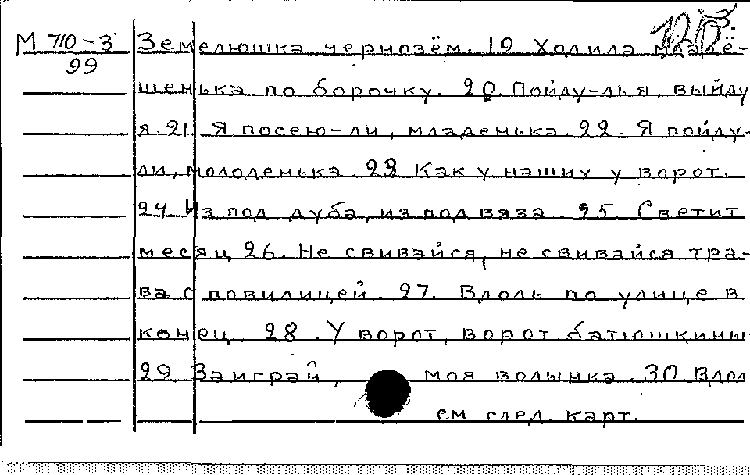 М 710-3 Земелюшка чернозём. 19 Ходила младё-
99 шенька по борочку. 20 Пойду-лья, выйду
я. 21. Я посею-ли, младенька. 22. Я пойду-
ли, молоденька. 22 Как у наших у ворот.
24. Из под дуба, из под вяза. 25. Светит
месяц 26. Не свивайся, не свивайся тра-
ва с повилицей. 27. Вдоль по улице в
конец. 28. У ворот, ворот батюшкиных
29 Заиграй, моя волынка. 30 Вдол
см след. карт.